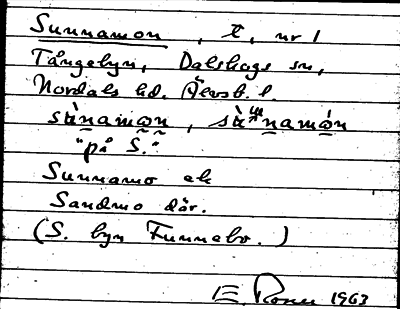 Sunnamon, t, nr 1
Tångebyn, Dalskogs sn,
Nordals hd. Älvsb. l.
sùnamon, namón
"på S."
Sunnamo ek
Sandmo där.
(S. byn Funnebo.)
1963